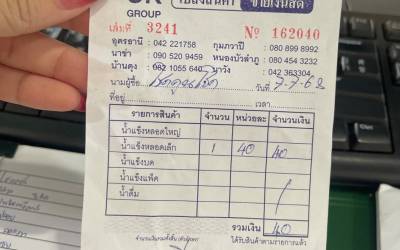 GROUP
ใบส่งสินค้า ขายเงินสด
เล่มที่ 3241 Nº 162040
อุดรธานี : 042 221758 กุมภวาปี : 080 899 8992
นาข่า : 090 520 9459 หนองบัวลำภู : 080 454 3232
บ้านดุง : 082 1055 640 นาวัง : 042 363304
นามผู้ซื้อ วันที่ 7-7-62
ที่อยู่ เวลา
รายการสินค้า จำนวน หน่วยละ จำนวนเงิน
น้ำแข็งหลอดใหญ่
น้ำแข็งหลอดเล็ก 1 40 40
น้ำแข็งบด
น้ำแข็งแพ็ค
น้ำดื่ม
รวมเงิน 40
ได้รับสินค้าตามรายการแล้ว